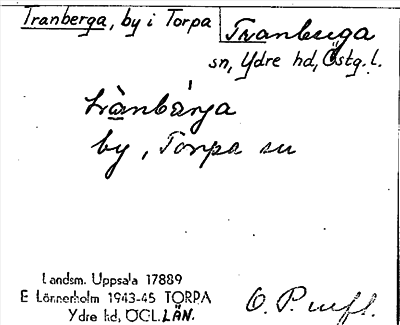 Tranberga, by i Torpa Tranberga
sn, Ydre hd, Östg. l.
trànbärja
by, Torpa sn
Landsm. Uppsala 17889
E Lönnerholm 1943-45 TORPA
Ydre hd, ÖGL. LÄN.